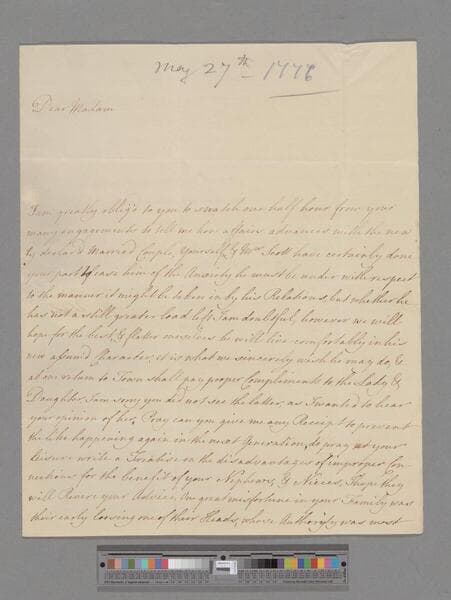 May 27th 1776
Dear Madam
I am greatly oblig'd to you to snatch one half hour from your
many engagements to tell me how affairs advances with the new
ly declar'd Married Couple, Yourself & Mrs Scott have certainly done
your part to ease him of the Anxiety he must be under with respect
to the manner it might be taken in by his Relations, but whether he
has not a still greater load left I am doubtful, however we will
hope for the best, & flatter ourselves he will live comfortably in his
new assum'd Character, it is what we sincerely wish he may do, &
at our return to Town shall pay proper Compliments to the Lady &
Daughter, I am sorry you did not see the latter, as I wanted to hear
your opinion of her, Pray can you give me any Receipt to prevent
the like happening again in the next Generation, do pray at your
leisure write a Treatise on the disadvantages of improper Con
nections for the benefit of your Nephews, & Nieces, I hope they
will Revere your Advice, One great misfortune in your Family was
their early loosing one of their Heads, whose Authority was most